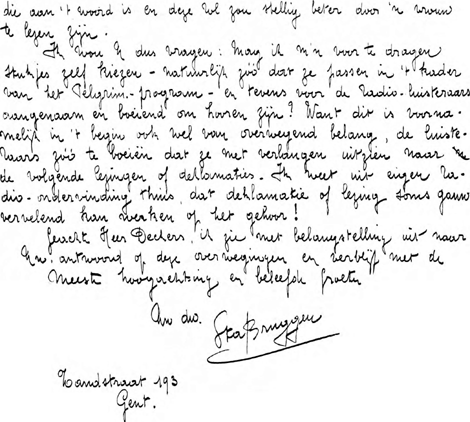 die aan 't woord is en deze rol zou stellig beter door 'n vrouw
te lezen zijn.
Ik wou U dus vragen: Mag ik m'n voor te dragen
stukjes zelf kiezen - natuurlijk zóó dat ze passen in 't kader
van het Pelgrim-program - en tevens voor de Radio-luisteraars
aangenaam en boeiend om hooren zijn? Want dit is voorna-
melijk in 't begin ook wel van overwegend belang, de luiste-
raars zóó te boeien dat ze met verlangen uitzien naar
de volgende lezingen of deklamaties. Ik weet uit eigen ra-
dio-ondervinding thuis, dat deklamatie of lezing soms gauw
vervelend kan werken op het gehoor!
Geacht Heer Deckers, ik zie met belangstelling uit naar
Uw antwoord op deze overwegingen en verblijf met de
Meeste hoogachting en beleefde groeten
Uw dw.
Bruggen
Zandstraat 193
Gent.